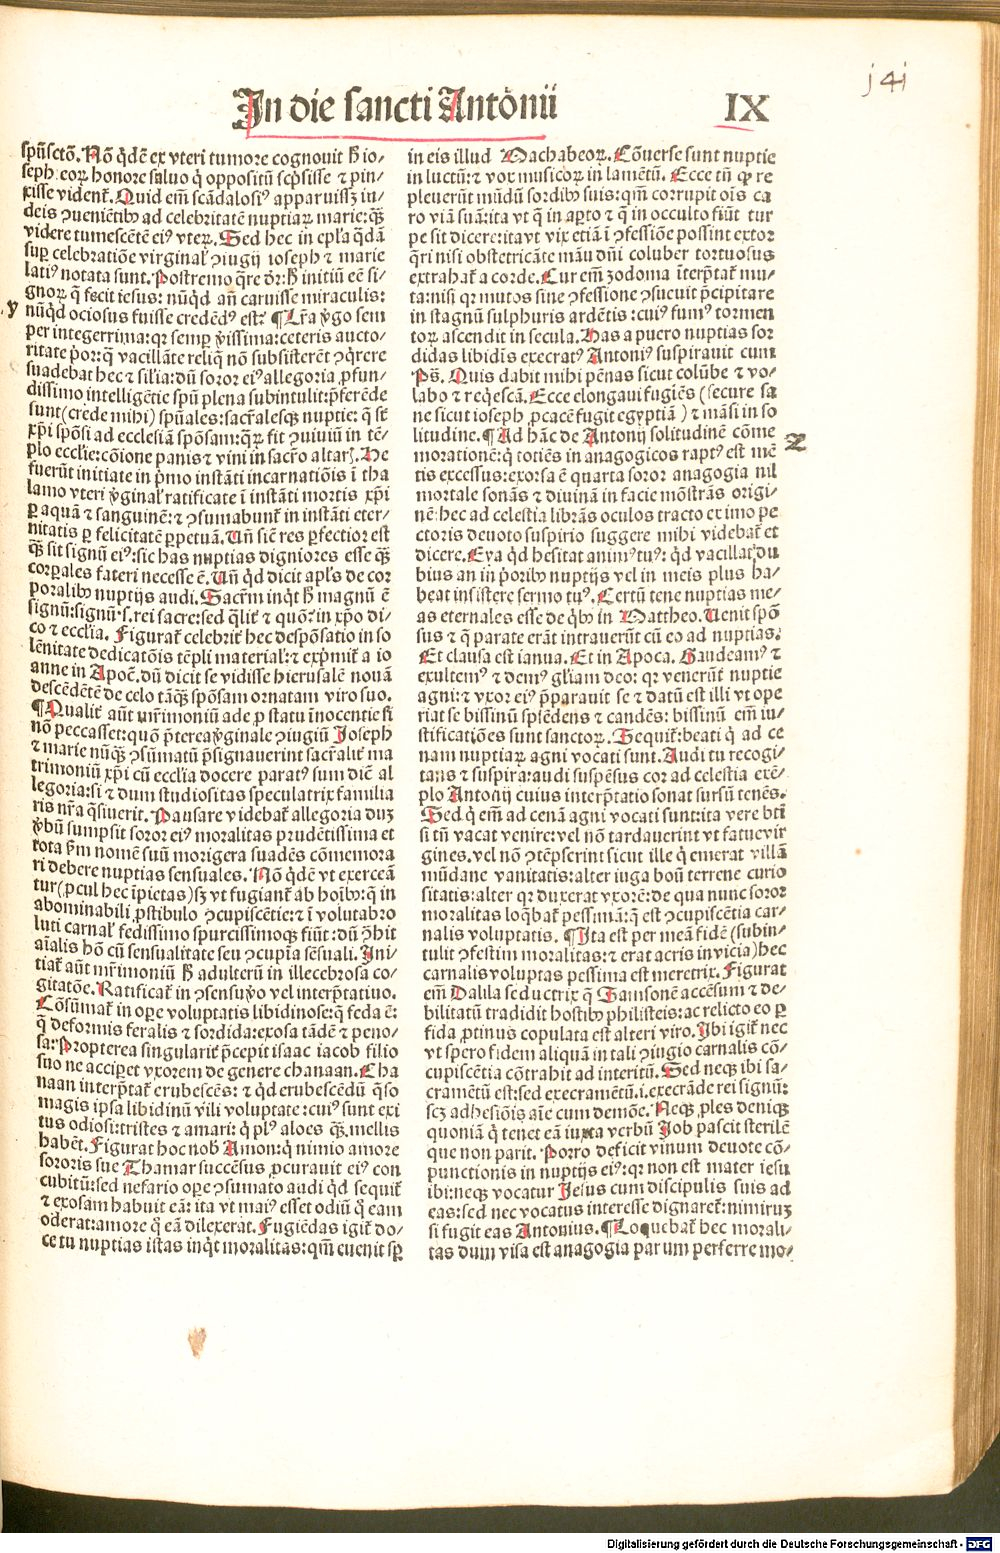 j4i
In die sancti Antōnii IX
spūsctō. Nō q̄dē ex vteri tumore cognouit h̄ io-
seph eoꝝ honore saluo q̄ oppositū scp̄sisse ⁊ pin-
xisse vident᷑. Quid em̄ scādalosiꝰ apparuissꝫ iu-
deis ꝯueniētibꝰ ad celebritatē nuptiaꝝ marie: qꝫ
videre tumescētē eiꝰ vteꝝ. Sed hec in epl'a q̄dā
sup celebratiōe virginal' ꝯiugij ioseph ⁊ marie
latiꝰ notata sunt. Postremo q̄re dr̄: h̄ initiū eē si-
gnoꝝ q̄ fecit iesus: nūqd añ caruisse miraculis:
nūqd ociosus fuisse credēdꝰ est: ¶ Lr̄a v̄go sem
per integerrima: qꝛ semp v̄issima: ceteris aucto-
ritate p̄or: q̄ vacillāte reliq̄ nō subsisterēt ꝯq̄rere
suadebat hec ⁊ sil'ia: dū soror eiꝰ allegoria ꝓfun-
dissimo intelligētie spū plena subintulit: p̄ferēde
sunt (crede mihi) spūales: sacr̄alesqꝫ nuptie: q̄ st̄
xp̄i spōsi ad ecclesiā spōsam: qꝝ fit ꝯuiuiū in tē-
plo ecclie: cōione panis ⁊ vini in sacr̄o altarꝭ. He
fuerūt initiate in p̄mo instāti incarnatiōis ī tha
lamo vteri v̄ginal' ratificate ī instāti mortis xp̄i
ꝑ aquā ⁊ sanguinē: ⁊ ꝯsumabunt᷑ in instāti eter-
nitatis ꝑ felicitatē ꝑpetuā. Un̄ siē res ꝑfectior est
qꝫ sit signū eiꝰ: sic has nuptias digniores esse qꝫ
corꝑales fateri necesse ē. Un̄ qd dicit apl's de cor
poralibꝰ nuptijs audi. Sacr̄m inqt h̄ magnū ē
signū: signū. s. rei sacre: sed qlit᷑ ⁊ quō: in xp̄o di-
co ⁊ ecclia. Figurat᷑ celebrit᷑ hec despōsatio in so
lēnitate dedicatōis tēpli material': ⁊ exp̄mit᷑ a io
anne in Apoc̄. dū dicit se vidisse hierusalē nouā
descēdētē de celo tāqꝫ spōsam ornatam viro suo.
¶ Qualit᷑ aūt mr̄imoniū ade ꝓ statu inocentie si
nō peccasset: quō p̄terea v̄ginale ꝯiugiū Joseph
⁊ marie nūqꝫ ꝯsūmatū p̄signauerint sacr̄alit᷑ ma
trimoniū xp̄i cū ecclīa docere paratꝰ sum diē al
legoria: si ⁊ dum studiositas speculatrix familia
ris nr̄a q̄siuerit. Pausare videbat᷑ allegoria duꝫ
v̄bū sumpsit soror eiꝰ moralitas prudētissima et
tota ẜm nomē suū morigera suadēs cōmemora
ri debere nuptias sensuales. Nō q̄dē vt exerceā
tur (ꝓcul hec īpietas) sꝫ vt fugiant᷑ ab hoībꝰ: q̄ in
abominabili ꝓstibulo ꝯcupiscētie: ⁊ ī volutabro
luti carnal' fedissimo spurcissimoqꝫ fiūt: dū ꝯhit
aīalis hō cū sensualitate seu ꝯcupīa sēsuali. Ini-
tiat᷑ aūt mr̄imoniū h̄ adulterū in illecebrosa co-
gitatōe. Ratificat᷑ in ꝯsensu v̄o vel interp̄tatiuo.
Cōsūmat᷑ in oꝑe voluptatis libidinose: q̄ feda ē:
q̄ deformis feralis ⁊ sordida: exosa tādē ⁊ peno-
sa: Propterea singularit᷑ p̄cepit isaac iacob filio
suo ne accipet vxorem de genere chanaan. Cha
naan interp̄tat᷑ erubescēs: ⁊ qd erubescēdū q̄so
magis ipsa libidinū vili voluptate: cuiꝰ sunt exi
tus odiosi: tristes ⁊ amari: q̄ plꝰ aloes qꝫ. mellis
habēt. Figurat hoc nob̄ Amon: q̄ nimio amore
sororis sue Thamar succēsus ꝓcurauit eiꝰ con
cubitū: sed nefario oꝑe ꝯsumato audi qd sequit᷑
⁊ exosam habuit eā: ita vt maiꝰ esset odiū q̄ eam
oderat: amore q̄ eā dilexerat. Fugiēdas igit᷑ do-
ce tu nuptias istas inqt moralitas: qm̄ euenit sꝑ
y
in eis illud Machabeoꝝ. Cōuerse sunt nuptie
in luctū: ⁊ vox musicoꝝ in lamētū. Ecce tū qꝛ re
pleuerūt mūdū sordibꝰ suis: qm̄ corrupit oīs ca
ro viā suā: ita vt q̄ in aꝑto ⁊ q̄ in occulto fiūt tur
pe sit dicere: ita vt vix etiā ī ꝯfessiōe possint extor
q̄ri nisi obstetricāte māu dn̄i coluber tortuosus
extrahat᷑ a corde. Cur em̄ zodoma īterp̄tat᷑ mu-
ta: nisi qꝛ mutos sine ꝯfessione ꝯsueuit p̄cipitare
in stagnū sulphuris ardētis: cuiꝰ fumꝰ tormen
toꝝ ascendit in secula. Has a puero nuptias sor
didas libidīs execratꝰ Antoniꝰ suspirauit cum
Ps̄. Quis dabit mihi pēnas sicut colūbe ⁊ vo-
labo ⁊ reqescā. Ecce elongaui fugiēs (secure sa
ne sicut ioseph ꝓcacē fugit egyptiā) ⁊ māsi in so
litudine. ¶ Ad hāc de Antonij solitudinē cōme
morationē: q̄ totiēs in anagogicos raptꝰ est mē
tis excessus: exorsa ē quarta soror anagogia nil
mortale sonās ⁊ diuinā in facie mōstrās origi-
nē: hec ad celestia librās oculos tracto ex imo pe
ctoris deuoto suspirio suggere mihi videbat᷑ et
dicere. Eya qd hesitat animꝰ tuꝰ: qd vacillat du
bius an in p̄oribꝰ nuptijs vel in meis plus ha-
beat insistere sermo tuꝰ. Certū tene nuptias me-
as eternales esse de qbꝰ in Mattheo. Uenit spō
sus ⁊ q̄ parate erāt intrauerūt cū eo ad nuptias:
Et clausa est ianua. Et in Apoca. Gaudeamꝰ ⁊
exultemꝰ ⁊ demꝰ gl'iam deo: qꝛ venerūt nuptie
agni: ⁊ vxor eiꝰ p̄parauit se ⁊ datū est illi vt ope
riat se bissinū splēdens ⁊ candēs: bissinū em̄ iu-
stificatiōes sunt sanctoꝝ. Sequit᷑: beati q̄ ad ce
nam nuptiaꝝ agni vocati sunt. Audi tu recogi-
tans ⁊ suspira: audi suspēsus cor ad celestia exē-
plo Antonij cuius interp̄tatio sonat sursū tenēs.
Sed q̄ em̄ ad cenā agni vocati sunt: ita vere bt̄i
si tū vacat venire: vel nō tardauerint vt fatue vir
gines. vel nō ꝯtēpserint sicut ille q̄ emerat villā
mūdane vanitatis: alter iuga boū terrene curio
sitatis: alter qꝛ duxerat vxorē: de qua nunc soror
moralitas loqbat᷑ pessimā: q̄ est ꝯcupiscētia car-
nalis voluptatis. ¶ Ita est per meā fidē (subin-
tulit ꝯfestim moralitas: ⁊ erat acris in vicia) hec
carnalis voluptas pessima est meretrix. Figurat
em̄ Dalila seductrix q̄ Samsonē accēsum ⁊ de-
bilitatū tradidit hostibꝰ philisteis: ac relicto eo ꝑ
fida ꝓtinus copulata est alteri viro. Ibi igit᷑ nec
vt spero fidem aliquā in tali ꝯiugio carnalis cō-
cupiscētia cōtrahit ad interitū. Sed neqꝫ ibi sa-
cramētū est: sed execramētū. i. execrāde rei signū:
scꝫ adhesiōis aīe cum demōe. Neqꝫ ꝓles deniqꝫ
quoniā q̄ tenet eā iuxta verbū Job pascit sterilē
que non parit. Porro deficit vinum deuote cō-
punctionis in nuptijs eiꝰ: qꝛ non est mater iesu
ibi: neqꝫ vocatur Jesus cum discipulis suis ad
eas: sed nec vocatus interesse dignaret᷑: nimiruꝫ
si fugit eas Antonius. ¶ Loquebat᷑ hec morali-
tas dum visa est anagogia parum perferre mo-
z
Digitalisierung gefördert durch die Deutsche Forschungsgemeinschaft - DFG